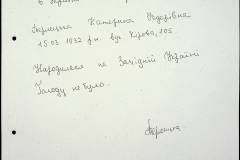 Катерина Федорівна
15.03.1932 р.н. вул. Кірова, 105
Народилася на Західній Україні
Голоду не було.